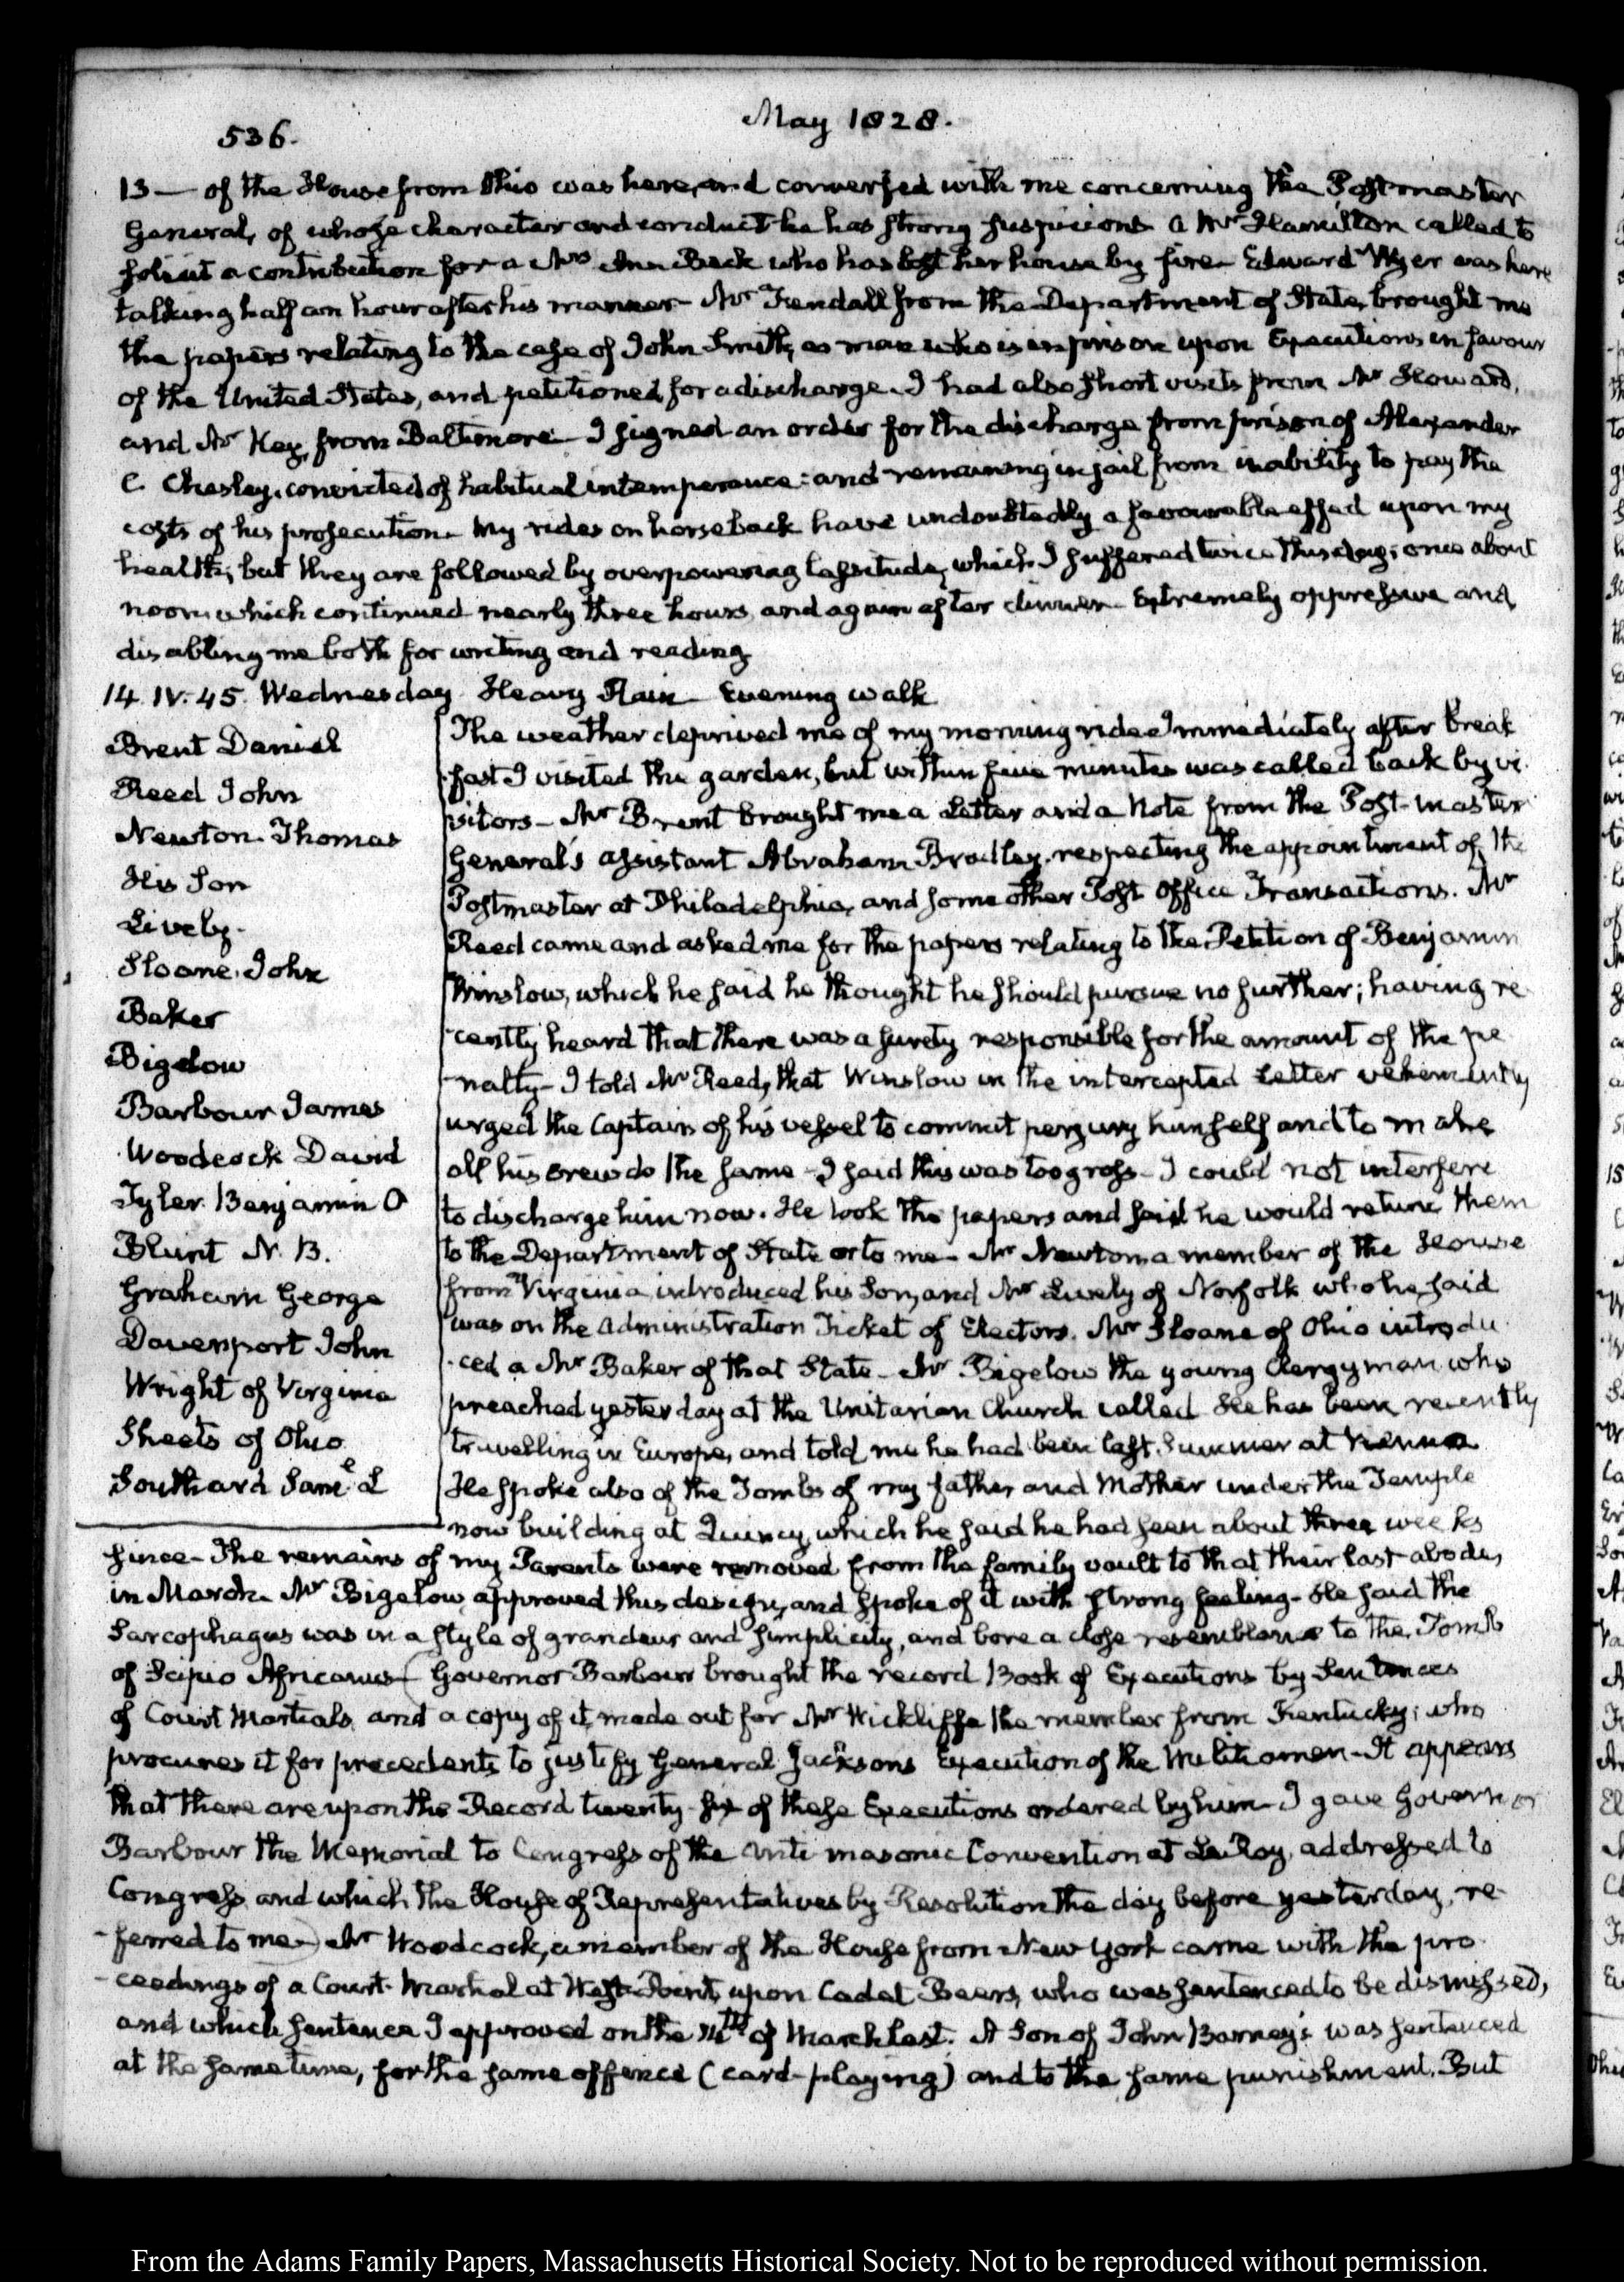 536.
May 1828.
13— of the House from Ohio was here, and conversed with me concerning the Postmaster
General, of whose character and conduct he has strong suspicions. A Mr Hamilton called to
solicit a contribution for a Mrs Ann Beck who has lost her house by fire— Edward Wyer was here
talking half an hour after his manner— Mr Kendall from the Department of State, brought me
the papers relating to the case of John Smith, a man who is in prison upon Executions in favour
of the United States, and petitioned for a discharge. I had also short visits from Mr Howard,
and Mr Key, from Baltimore— I signed an order for the discharge from prison of Alexander
C. Chesley, convicted of habitual intemperance: and remaining in jail from inability to pay the
costs of his prosecution— My rides on horseback have undoubtedly a favourable effect upon my
health; but they are followed by overpowering lassitude, which I suffered twice this day; once about
noon which continued nearly three hours, and again after dinner— Extremely oppressive and
disabling me both for writing and reading
14. IV. 45. Wednesday. Heavy Rain— Evening walk
Brent Daniel
Reed John
Newton. Thomas
His Son
Lively.
Sloane. John
Baker
Bigelow
Barbour James
Woodcock David
Tyler. Benjamin O
Blunt N. B.
Graham George
Davenport John
Wright of Virginia
Sheets of Ohio
Southard Saml L
The weather deprived me of my morning ride. Immediately after break
-fast I visited the garden, but within five minutes was called back by vi
sitors— Mr Brent brought me a Letter and a Note from the Post-master
General's assistant Abraham Bradley, respecting the appointment of the
Postmaster at Philadelphia, and some other Post Office Transactions. Mr
Reed came and asked me for the papers relating to the Petition of Benjamin
Winslow, which he said he thought he should pursue no further; having re
-cently heard that there was a surety responsible for the amount of the pe
-nalty— I told Mr Reed, that Winslow in the intercepted Letter vehemently
urged the Captain of his vessel to commit perjury himself and to make
all his crew do the same— I said this was too gross— I could not interfere
to discharge him now. He took the papers and said he would return them
to the Department of State or to me— Mr Newton a member of the House
from Virginia introduced his Son, and Mr Lively of Norfolk who he said
was on the Administration Ticket of Electors. Mr Sloane of Ohio introdu
-ced a Mr Baker of that State— Mr Bigelow the young Clergyman who
preached yesterday at the Unitarian Church called He has been recently
travelling in Europe, and told me he had been last Summer at Vienna
He spoke also of the Tombs of my father and Mother under the Temple
now building at Quincy, which he said he had seen about three weeks
since— The remains of my Parents were removed from the family vault to that their last abode,
in March— Mr Bigelow approved this design, and spoke of it with strong feeling— He said the
Sarcophagus was in a style of grandeur and simplicity, and bore a close resemblance to the Tomb
of Scipio Africanus— (Governor Barbour brought the record Book of Executions by Sentences
of Court Martials, and a copy of it, made out for Mr Wickliffe the member from Kentucky; who
procures it for precedents to justify General Jacksons Execution of the Militiamen— It appears
that there are upon the Record twenty-six of these Executions ordered by him— I gave Governor
Barbour the Memorial to Congress of the anti masonic Convention at Le Roy, addressed to
Congress, and which the House of Representatives by Resolution the day before yesterday, re-
-ferred to me—) Mr Woodcock, a member of the House from New York came with the pro
-ceedings of a Court-Martial at West-Point, upon Cadet Beers, who was sentenced to be dismissed,
and which sentence I approved on the of March last. A Son of John Barney's was sentenced
at the same time, for the same offence (card-playing) and to the same punishment. But
From the Adams Family Papers, Massachusetts Historical Society. Not to be reproduced without permission.